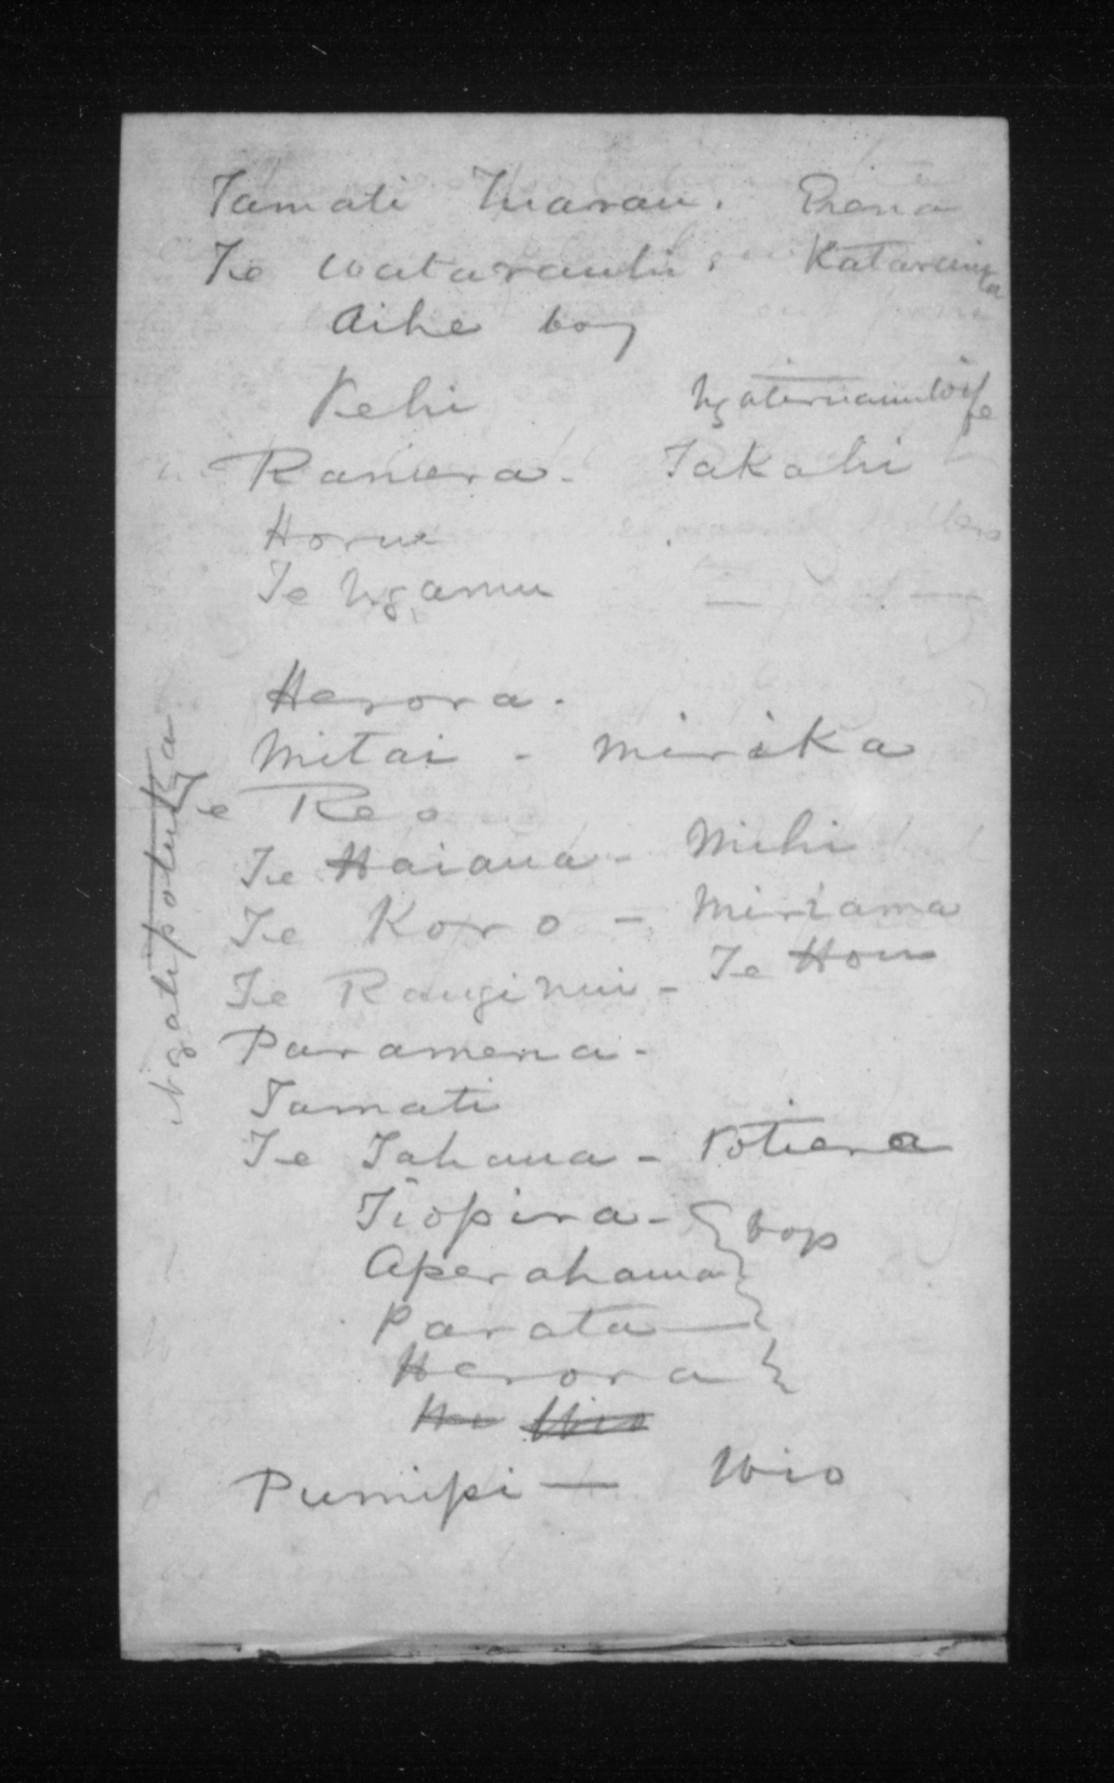 Tamati Tuarau. Pirena
Te Watarauhi. Katarina
Aihe boy
Kehi wife
Raniera - Takahi
Horue
Te Ngamu
Herora.
Mitai - Mirika
Te Reo
Te Haiana - Mihi
Te Koro - Miriama
Te Ranginui - Te Hou
Paramena -
Tamati
Te Tahana - Rotiera
Tiopira - boys
Aperahama
Parata
Herora
Pumipi — Wio
Ngatipotuka